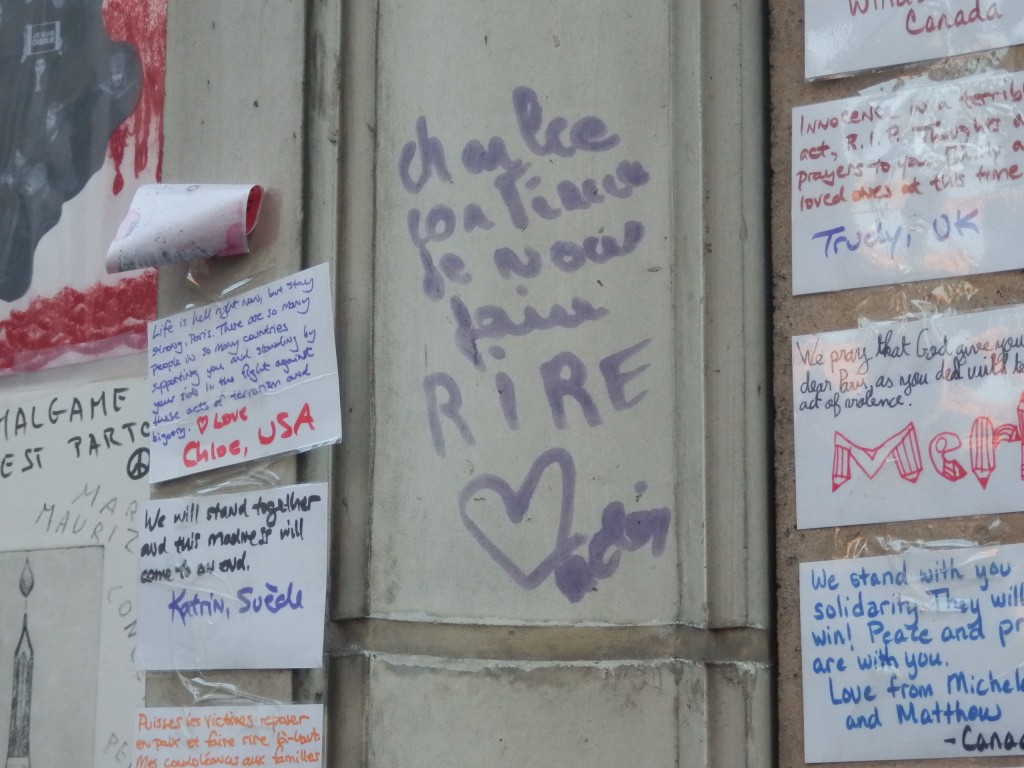 Life is hell right now, but stay
strong, Paris. There are so many
people in so many countries
supporting you and standing by
your side in the fight against
these acts of terrorism and
bigotry. ♡ Love
Chloe, USA
MALGAME
EST PARTO
MAR
MAURIZ
CON
We will stand together
and this madness will
come to an end.
Katrin, Suède
Puisses les victimes reposer
en paix et faire rire là-haut.
Mes condoléances aux familles
charlie
continue
de nous
faire
RIRE
Canada
INNOCENCE in a terrible
act, R.I.P. Thoughts
prayers to your family
loved ones at this time
Trudy, UK
We pray that God give you
dear Paris, as you deal with
act of violence!
Mer
We stand with you
solidarity. They will
win! Peace and pr
are with you.
Love from Michele
and Matthew
- Canad